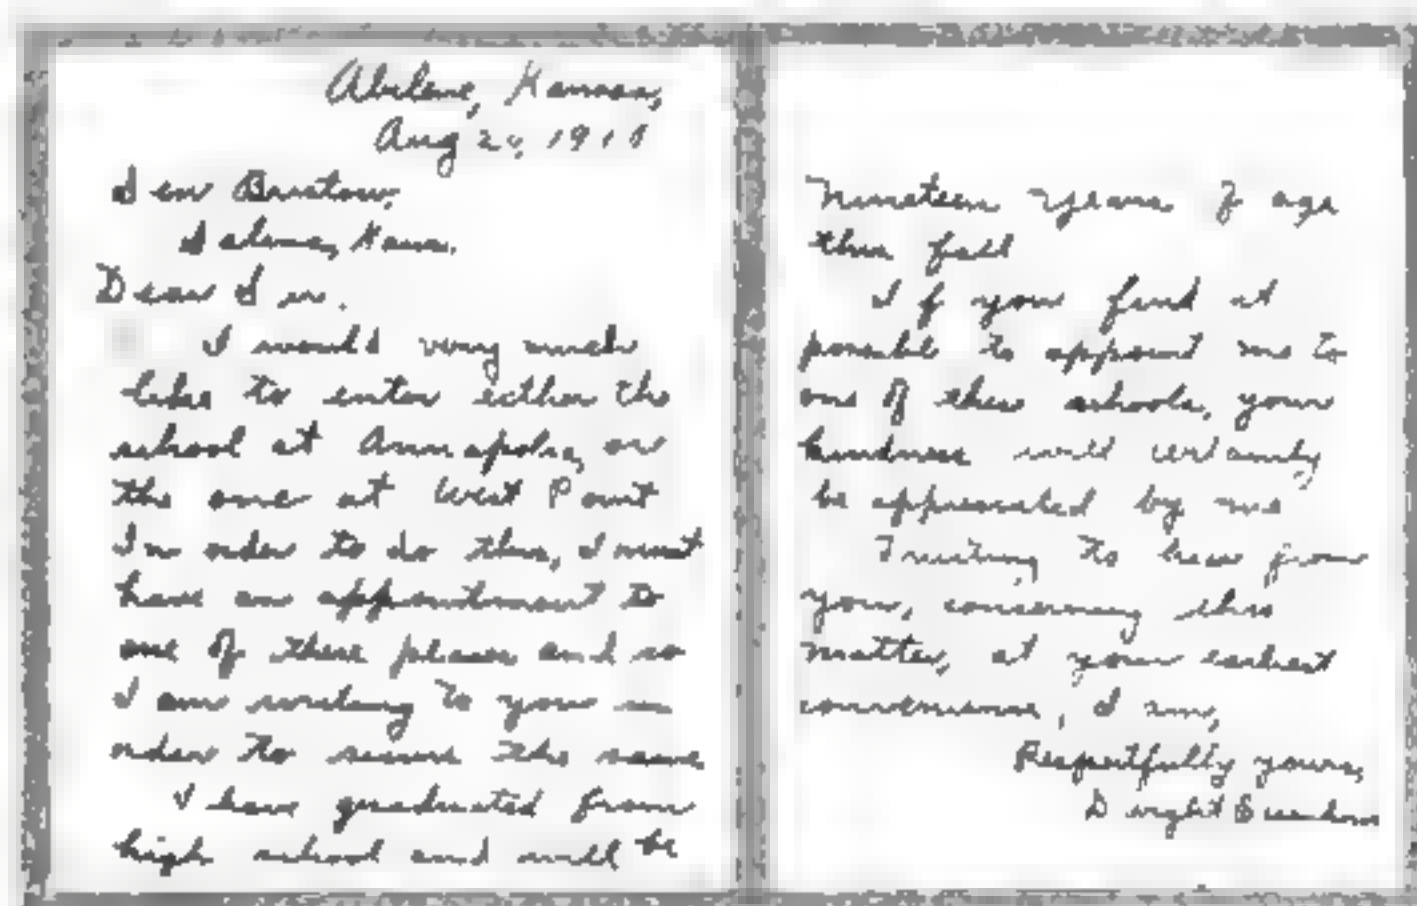 Abilene, Kansas,
Aug 20, 1910
Sen Bristow,
Salina, Kans.
Dear Sir.
I would very much
like to enter either the
school at Annapolis, or
the one at West Point
In order to do this, I must
have an appointment to
one of these places and so
I am writing to you in
order to secure the same
I have graduated from
high school and will be
nineteen years of age
this fall
If you find it
possible to appoint me to
one of these schools, your
kindness will certainly
be appreciated by me
Trusting to hear from
you, concerning this
matter, at your earliest
convenience, I am,
Respectfully yours,
Dwight Eisenhower